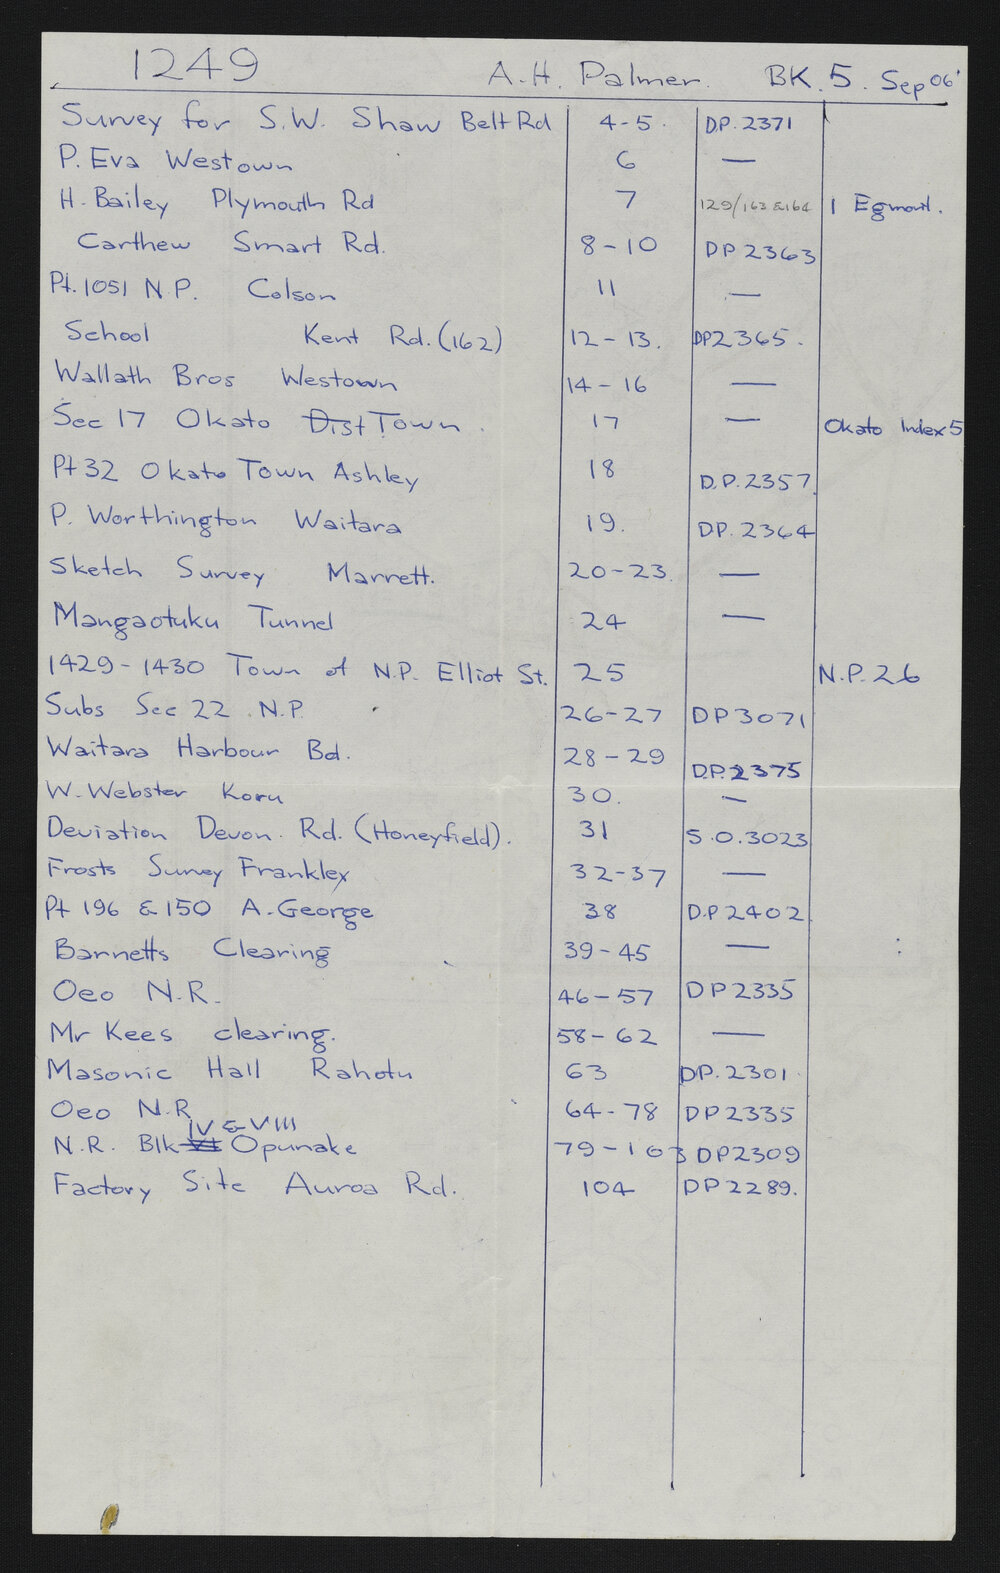 1249 A.H. Palmer. BK. 5. Sep 06'
Survey for S.W. Shaw Belt Rd 4-5. D.P. 2371
P. Eva Westown 6 —
H. Bailey Plymouth Rd 7 129/163 & 164 1 Egmont.
Carthew Smart Rd. 8-10 DP 2363
Pt. 1051 N.P. Colson 11 —
School Kent Rd. (162) 12-13. DP2365.
Wallath Bros Westown 14-16 —
Sec 17 Okato Dist Town. 17 — Okato Index 5
Pt 32 Okato Town Ashley 18 D.P. 2357.
P. Worthington Waitara 19. DP. 2364
Sketch Survey Marrett. 20-23. —
Mangaotuku Tunnel 24 —
1429-1430 Town of N.P. Elliot St. 25 N.P. 26
Subs Sec 22 N.P. 26-27 DP 3071
Waitara Harbour Bd. 28-29 D.P. 2375
W. Webster Koru 30. —
Deviation Devon. Rd. (Honeyfield). 31 S.O. 3023
Frosts Survey Frankley 32-37 —
Pt 196 & 150 A. George 38 D.P 2402
Barnetts Clearing 39-45 —
Oeo N.R. 46-57 DP 2335
Mr Kees clearing. 58-62 —
Masonic Hall Rahotu 63 DP. 2301
Oeo N.R 64-78 DP 2335
IV & VIII
N.R. Blk VI Opunake 79-103 DP2309
Factory Site Auroa Rd. 104 DP 2289.